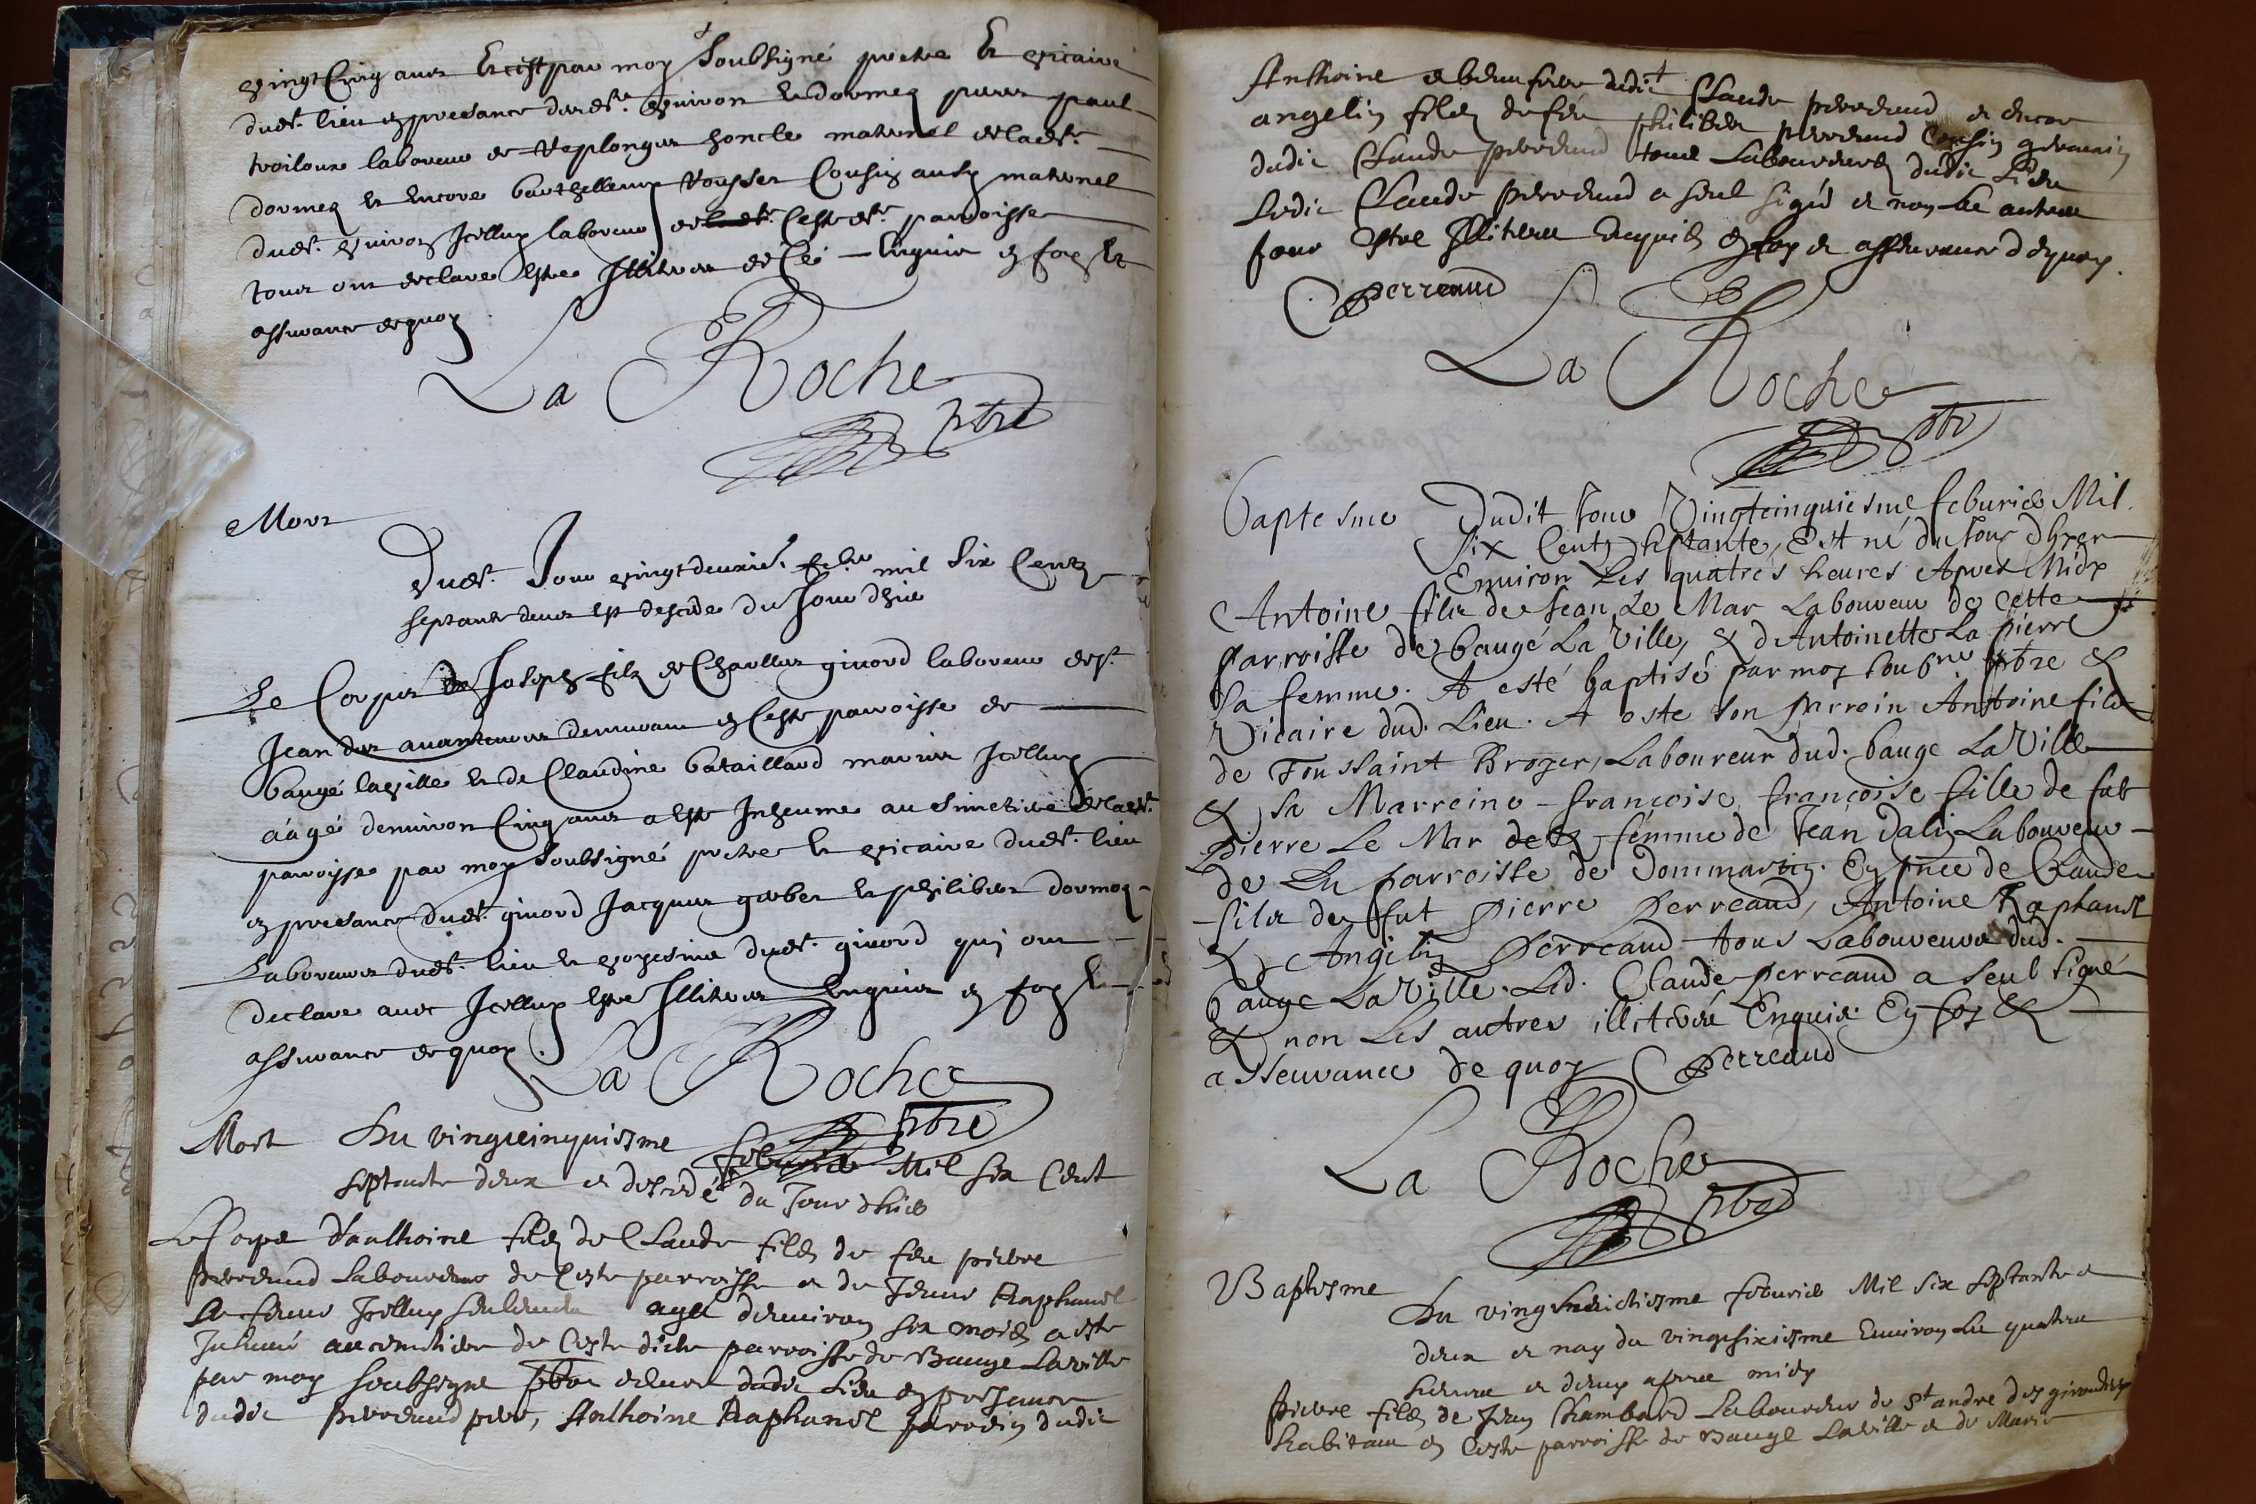 vingt Cinq ans Et cest par moy soubsigné prestre Et vicaire
dudt. lieu en presance desdts. Guivon Et dormeq pierre paul
laboureur de Veplongue honcle maternel de ladte.
dormeq Et Encore barthellemy Cousin aussy maternel
dudt. Guivon Icelluy laboureur de Ceste dte. parroisse
tous ont declare Estre Illitres de Ce Enquis en foy Et
assurance de quoy
La Roche
ptre
Mort
Dudt. Jour vingt deuxie. feb. mil Six Centz
septante deux Est descede du Jour dhier
Le Corps de Joseph filz de Charles givord laboureur de St.
Jean des avantures demeurant en Ceste parroisse de
baugé la ville Et de Claudine bataillard mariez Icelluy
aagé denviron Cinq ans a Esté Inhumé au Simetiere de ladte.
parroisse par moy Soubsigné prestre Et vicaire dudt. lieu
en presance dudt. givord Jacques gerber Et philibert dormeq
Laboureurs dudt. lieu Et voysins dudt. givord qui ont
declare avec Icelluy Estre Illitres Enquis en foy Et
assurance de quoy
La Roche
ptre
Mort Du vingtcinquiesme feburier Mil six Cent
septante deux es descedé du Jour dhier
Le Corps Danthoine filz de Claude filz de feu pierre
perreaud Laboureur de Ceste parroisse et de Jeane Raphanel
sa feme Icelluy aagé denviron six mois a esté
Inhumé au cemetiere de Ceste dicte parroisse de Bauge Laville
par moy soubsigne ptre vicaire dudit Lieu en presance
dudit perreaud pere, Anthoine Raphanel parrein dudit
Anthoine et beau frere dudit Claude perreaud et encor
angelin filz de feu philibert perreaud Cousin germain
dudit Claude perreaud tous Laboureurs dudit Lieu
Ledit Claude perreaud a seul signé et non Les autres
pour Estre Illitres Enquis en foy et asseurance dequoy.
Perreaud
La Roche
ptre
Baptesme Dudit Jour Vingtcinquiesme feburier Mil
Six Centz septante, Est né du Jour Dhyer
Environ Les quatres heures Apres Midy
Antoine filz de Jean Le Mar Laboureur de Cette
parroisse de baugé La Ville, & d'Antoinette La pierre
Sa femme. A esté baptisé par moy soubne ptre &
Vicaire dud. Lieu. A esté son parrein Antoine filz
de Toussaint Broyer, Laboureur dud. bauge La Ville
& sa Marreine françoise françoise fille de fut
Pierre Le Mar & femme de Jean Dalin Laboureur
de La parroisse de Dommartin. En pnce de Claude
filz de fut Pierre Perreaud, Antoine Raphanel
& Angelin Perreaud tous Laboureurs dud.
bauge La Ville. Led. Claude perreaud a seul signé
& non Les autres illitres Enquis. En foy &
asseurance de quoy Perreaud
La Roche
ptre
Baptesme
Du vingt feburier Mil six septante
deux es nay du vingtsixiesme Environ Les quatres
heures et demy apres midy
Pierre filz de Jean Chambard Laboureur de St andre
habitant en Ceste parroisse de Bauge Laville et de Marie